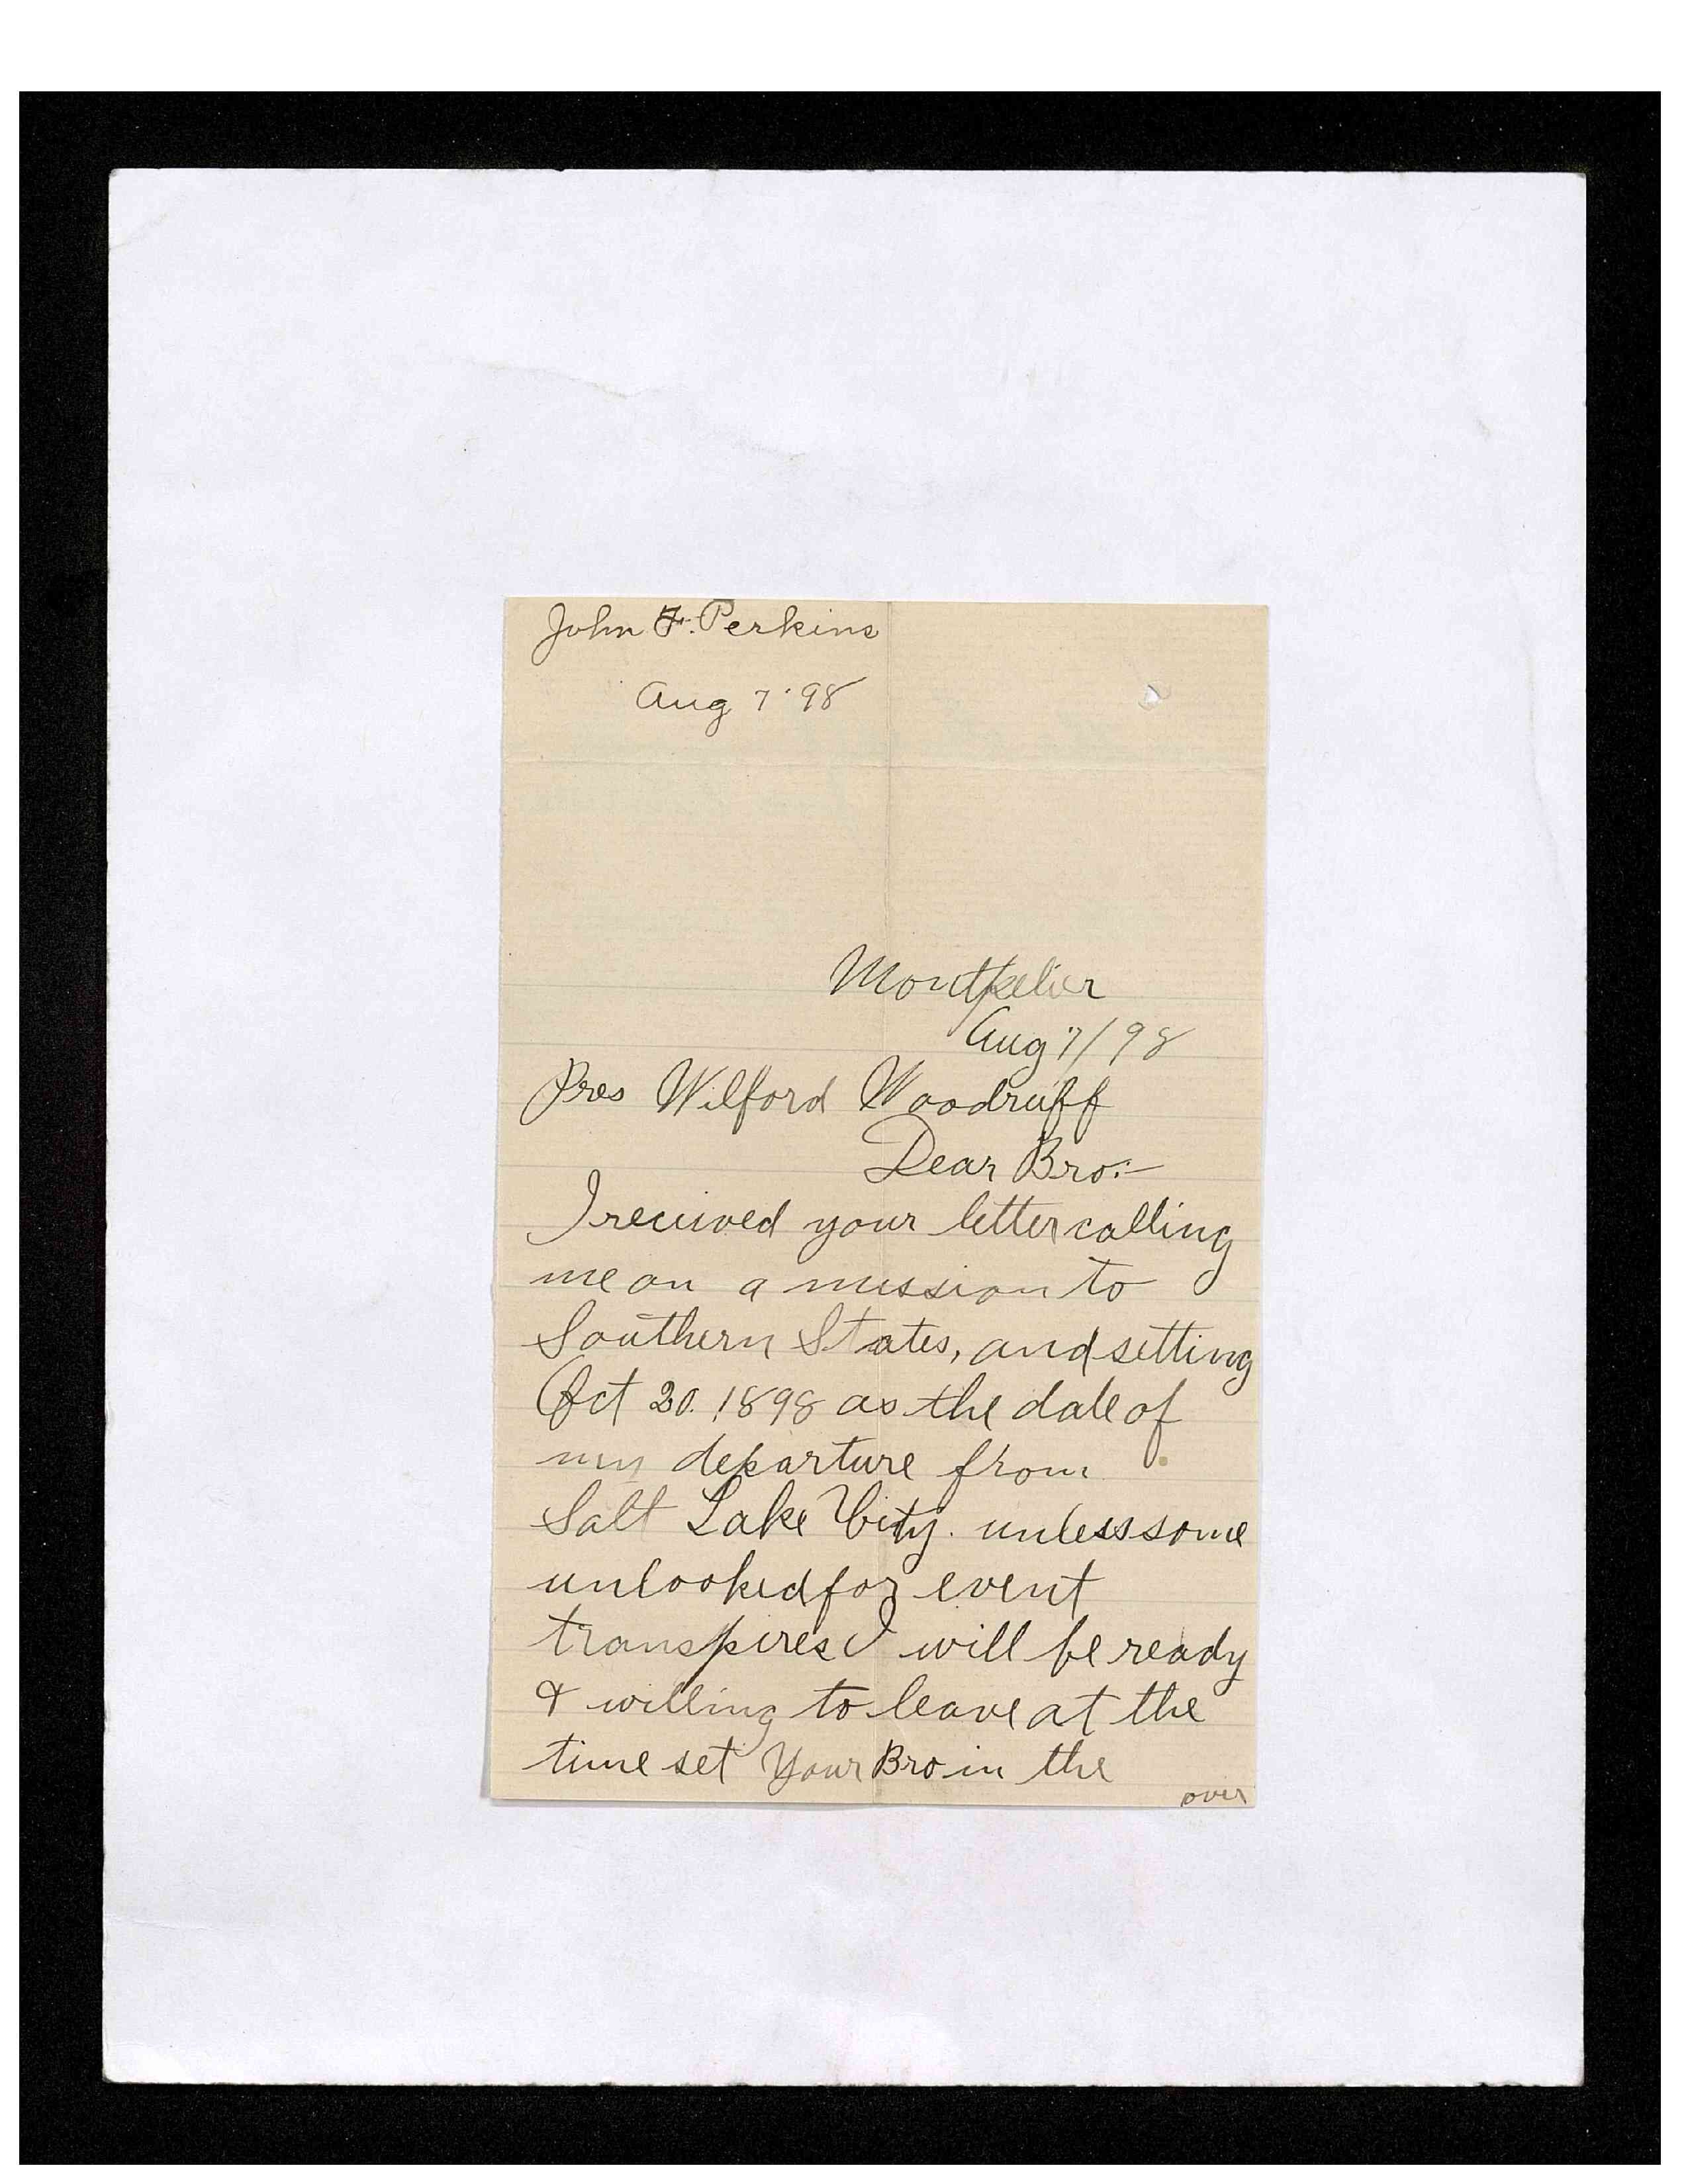 John F. Perkins
Aug 7 '98
Montpelier
Aug 7/98
Pres Wilford Woodruff
Dear Bro:-
I recieved your letter calling
me on a mission to
Southern States, and setting
Oct 20. 1898 as the date of
my departure from
Salt Lake City. unless some
unlooked for event
transpires I will be ready
& willing to leave at the
time set Your Bro in the
over